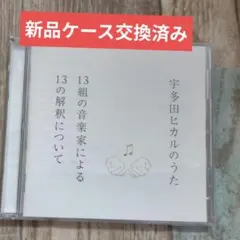 新品ケース交換済み
宇多田ヒカルのうた
13組の音楽家による
13の解釈について